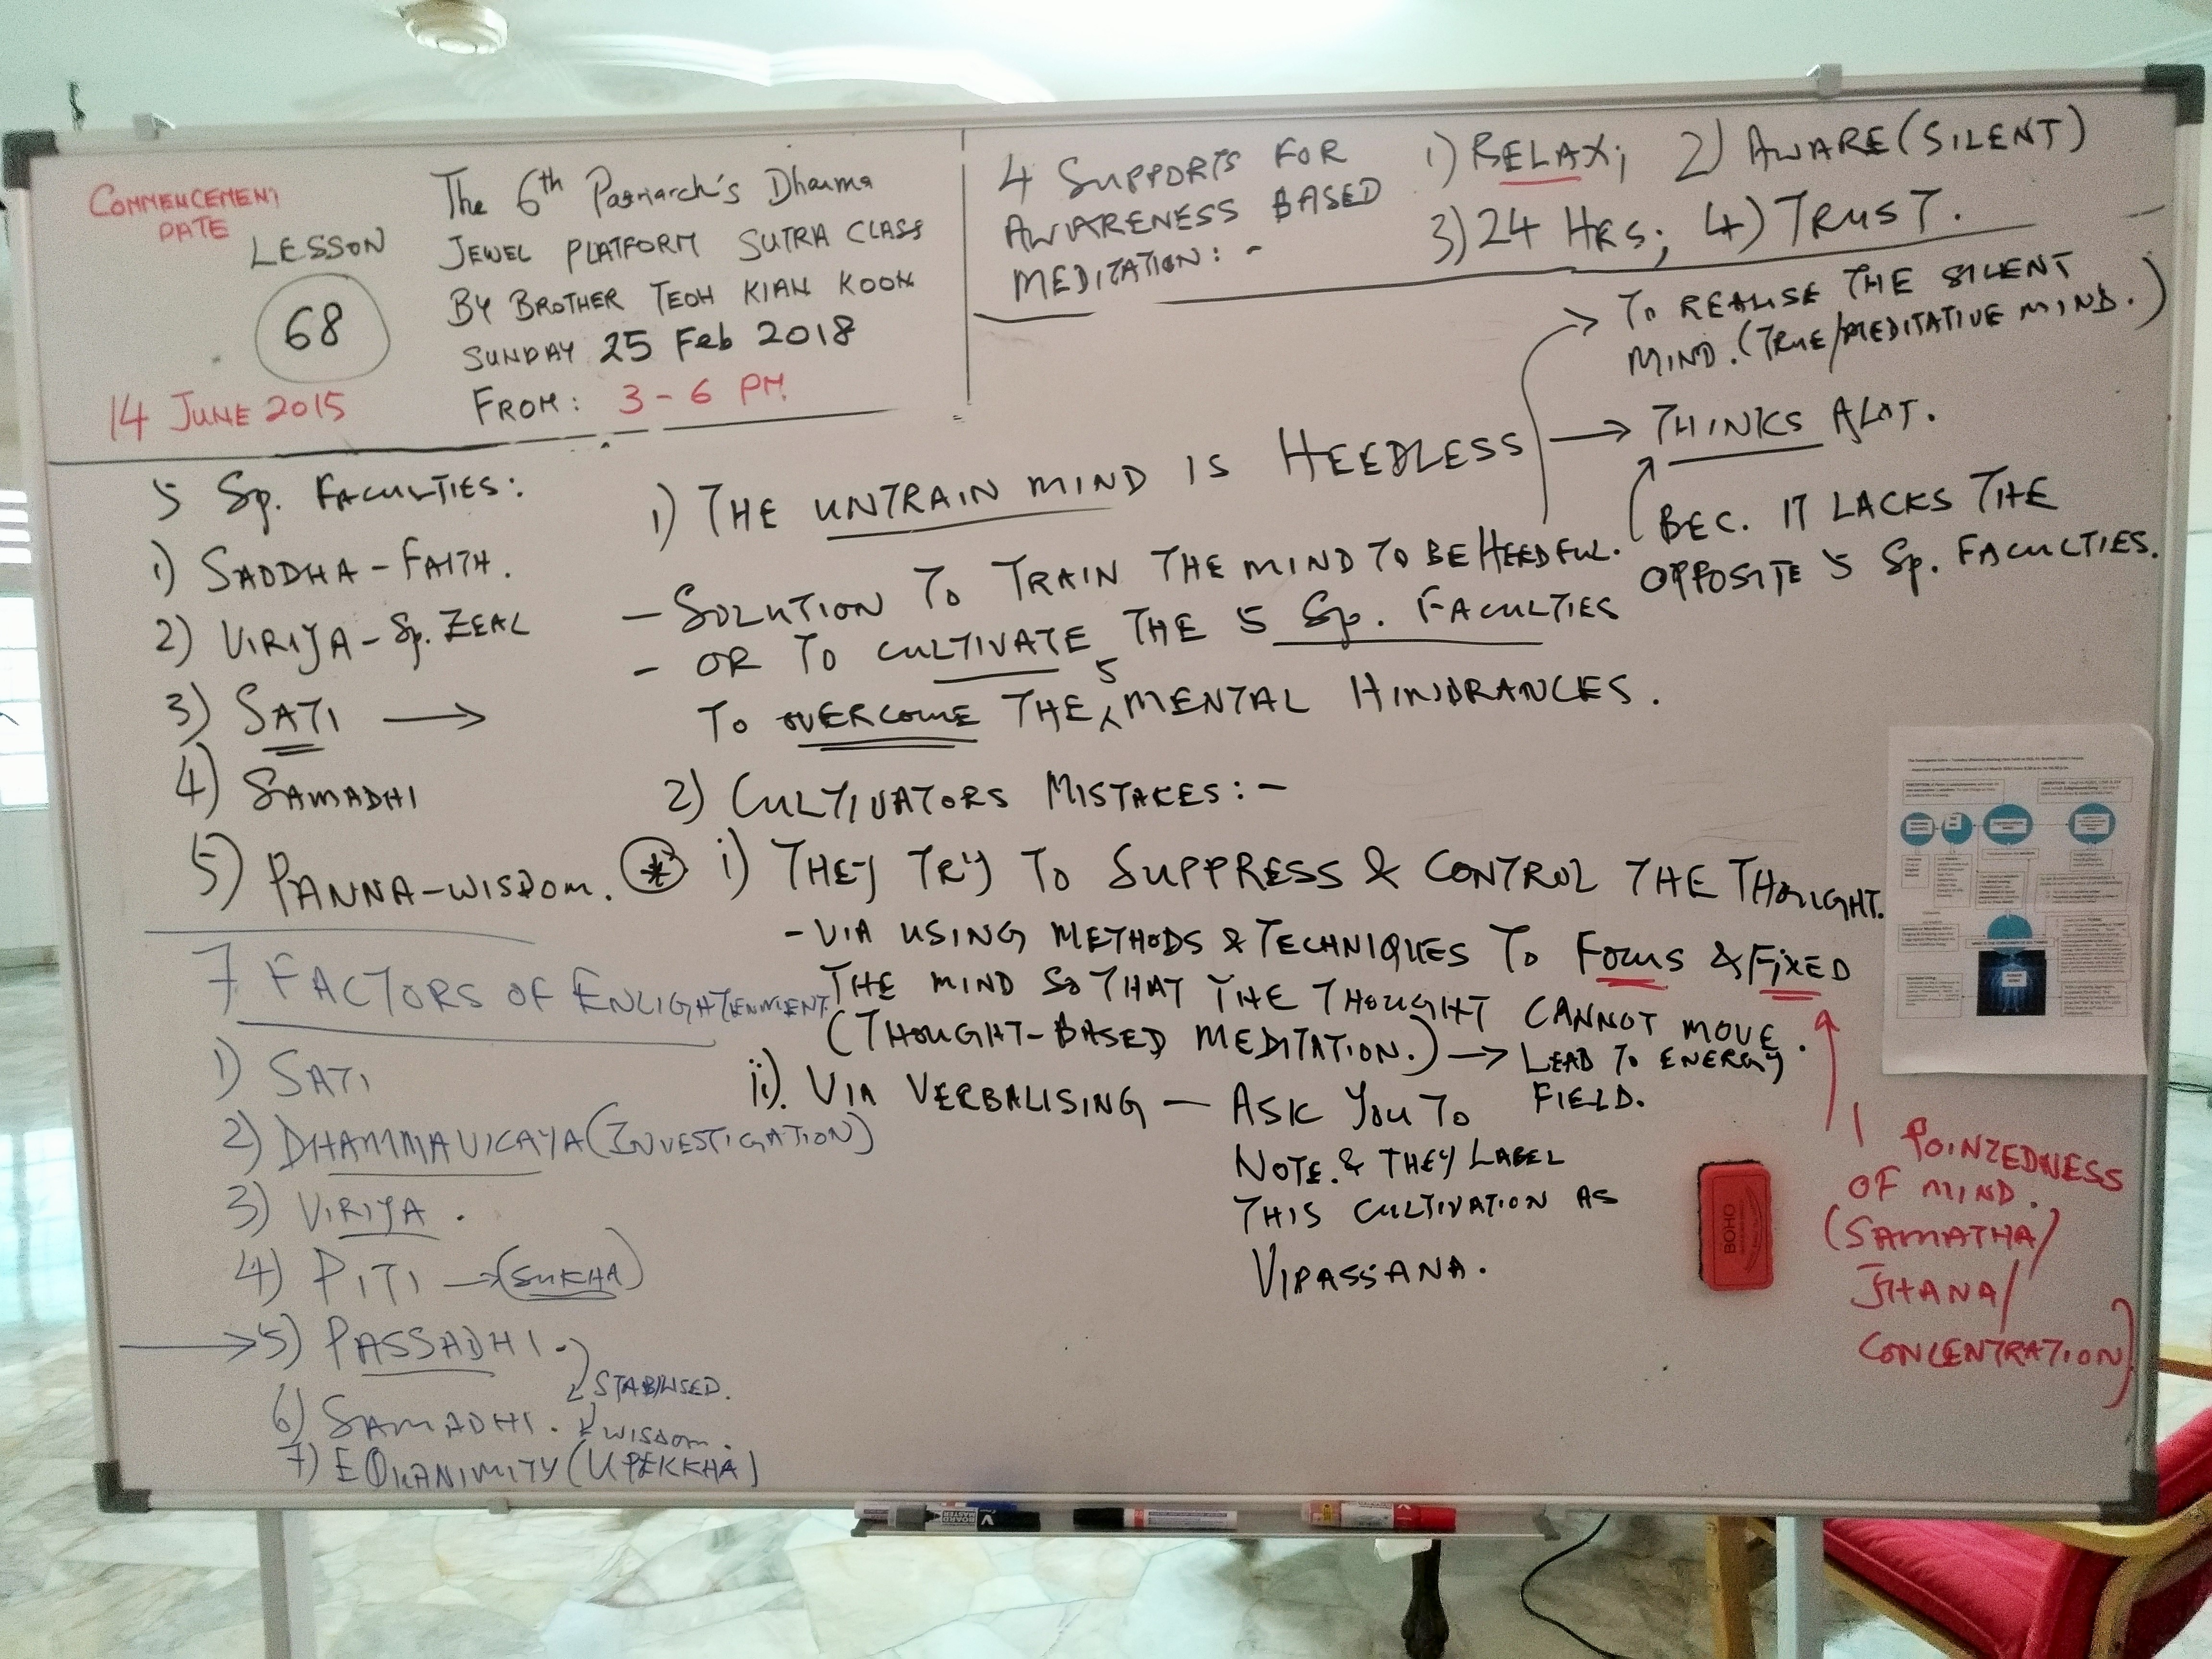 COMMENCEMENT
DATE
LESSON
68
14 JUNE 2015
The 6th Patriarch's Dharma
JEWEL PLATFORM SUTRA CLASS
BY BROTHER TEOH KIAN KOON
SUNDAY 25 Feb 2018
FROM: 3-6 PM
4 SUPPORTS FOR
AWARENESS BASED
MEDITATION:-
1) RELAX; 2) AWARE (SILENT)
3) 24 HRS; 4) TRUST.
5 Sp. FACULTIES:
1) SADDHA-FAITH.
2) VIRIYA-Sp. ZEAL
3) SATI →
4) SAMADHI
5) PANNA-WISDOM.
7 FACTORS OF ENLIGHTENMENT
1) SATI
2) DHAMMAVICAYA (INVESTIGATION)
3) VIRIYA.
4) PITI → (SUKHA)
→ 5) PASSADHI.
STABILISED.
6) SAMADHI.
WISDOM.
7) EQUANIMITY (UPEKKHA)
1) THE UNTRAIN MIND IS HEEDLESS → THINKS ALOT.
→ TO REALISE THE SILENT
MIND. (TRUE/MEDITATIVE MIND.)
BEC. IT LACKS THE
OPPOSITE 5 Sp. FACULTIES.
- SOLUTION TO TRAIN THE MIND TO BE HEEDFUL.
- OR TO CULTIVATE THE 5 Sp. FACULTIES
TO OVERCOME THE 5 MENTAL HINDRANCES.
2) CULTIVATORS MISTAKES:-
* i) THEY TRY TO SUPPRESS & CONTROL THE THOUGHT.
- VIA USING METHODS & TECHNIQUES TO FOCUS & FIXED
THE MIND SO THAT THE THOUGHT CANNOT MOVE.
(THOUGHT-BASED MEDITATION.) → LEAD TO ENERGY
FIELD.
ii). VIA VERBALISING - ASK YOU TO
NOTE. & THEY LABEL
THIS CULTIVATION AS
VIPASSANA.
1 POINTEDNESS
OF MIND.
(SAMATHA/
JHANA/
CONCENTRATION)
BOHO
BOARD
MASTER